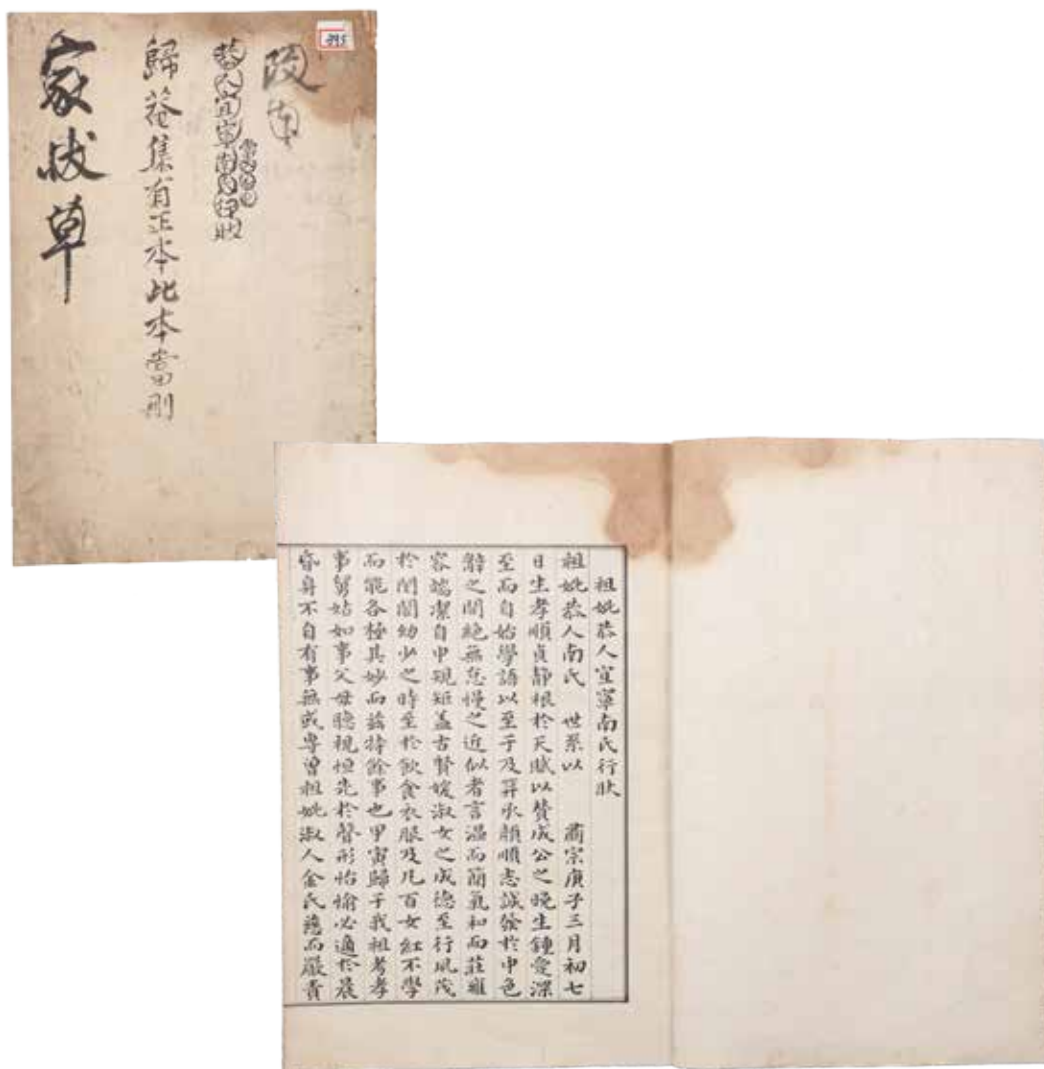 395
恭人宜寧南氏行狀
歸菴集有正本此本當刪
家狀草
祖妣恭人宜寧南氏行狀
祖妣恭人南氏 世系以 肅宗庚子三月初七
日生孝順貞靜根於天賦以贊成公之晚生鍾愛深
至而自始學語以至于及笄承顔順志誠發於中色
辭之間絶無怠慢之近似者言溫而簡氣和而莊雍
容端潔自中規矩盖古賢媛淑女之成德至行夙茂
於閨閤幼少之時至於飲食衣服及凡百女紅不學
而能各極其妙而茲特餘事也甲寅歸于我祖考孝
事舅姑如事父母聽視恒先於聲形怡愉必適於晨
昏身不自有事無或專曾祖妣淑人金氏慈而嚴責